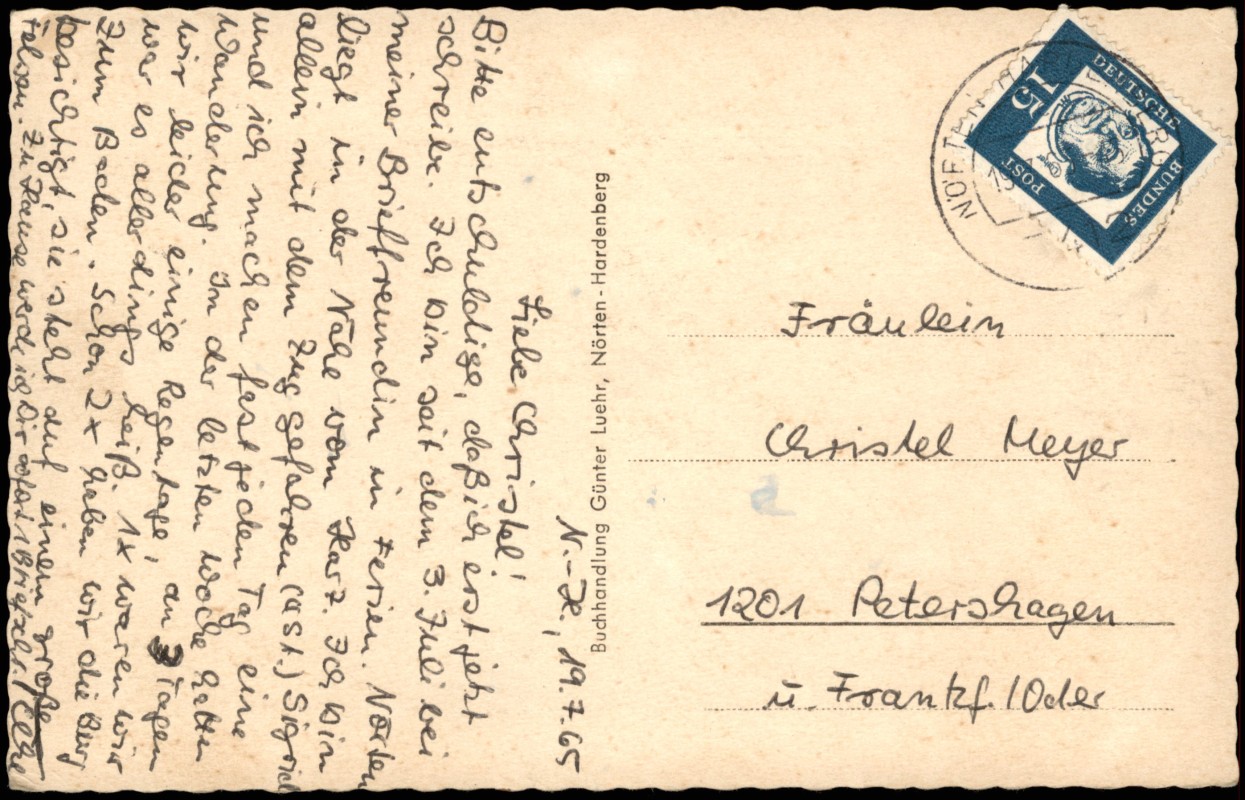 N.-H., 19.7.65
Liebe Christel!
Bitte entschuldige, daß ich erst jetzt
schreibe. Ich bin seit dem 3. Juli bei
meiner Brieffreundin in Ferien. Nörten
liegt in der Nähe vom Harz. Ich bin
allein mit dem Zug gefahren (ast.) Sigrid
und ich machen fast jeden Tag eine
Wanderung. In der letzten Woche hatten
wir leider einige Regentage, an 3 Tagen
war es allerdings heiß. 1x waren wir
zum Baden. Schon 2x haben wir die Burg
besichtigt, sie steht auf einem große
Felsen. Zu Hause werde ich Dir sofort 1 Brief schr.
Buchhandlung Günter Luehr, Nörten-Hardenberg
DEUTSCHE
BUNDES
POST
15
NÖRTEN-HARDENBERG
Fräulein
Christel Meyer
1201 Petershagen
ü. Frankf./Oder